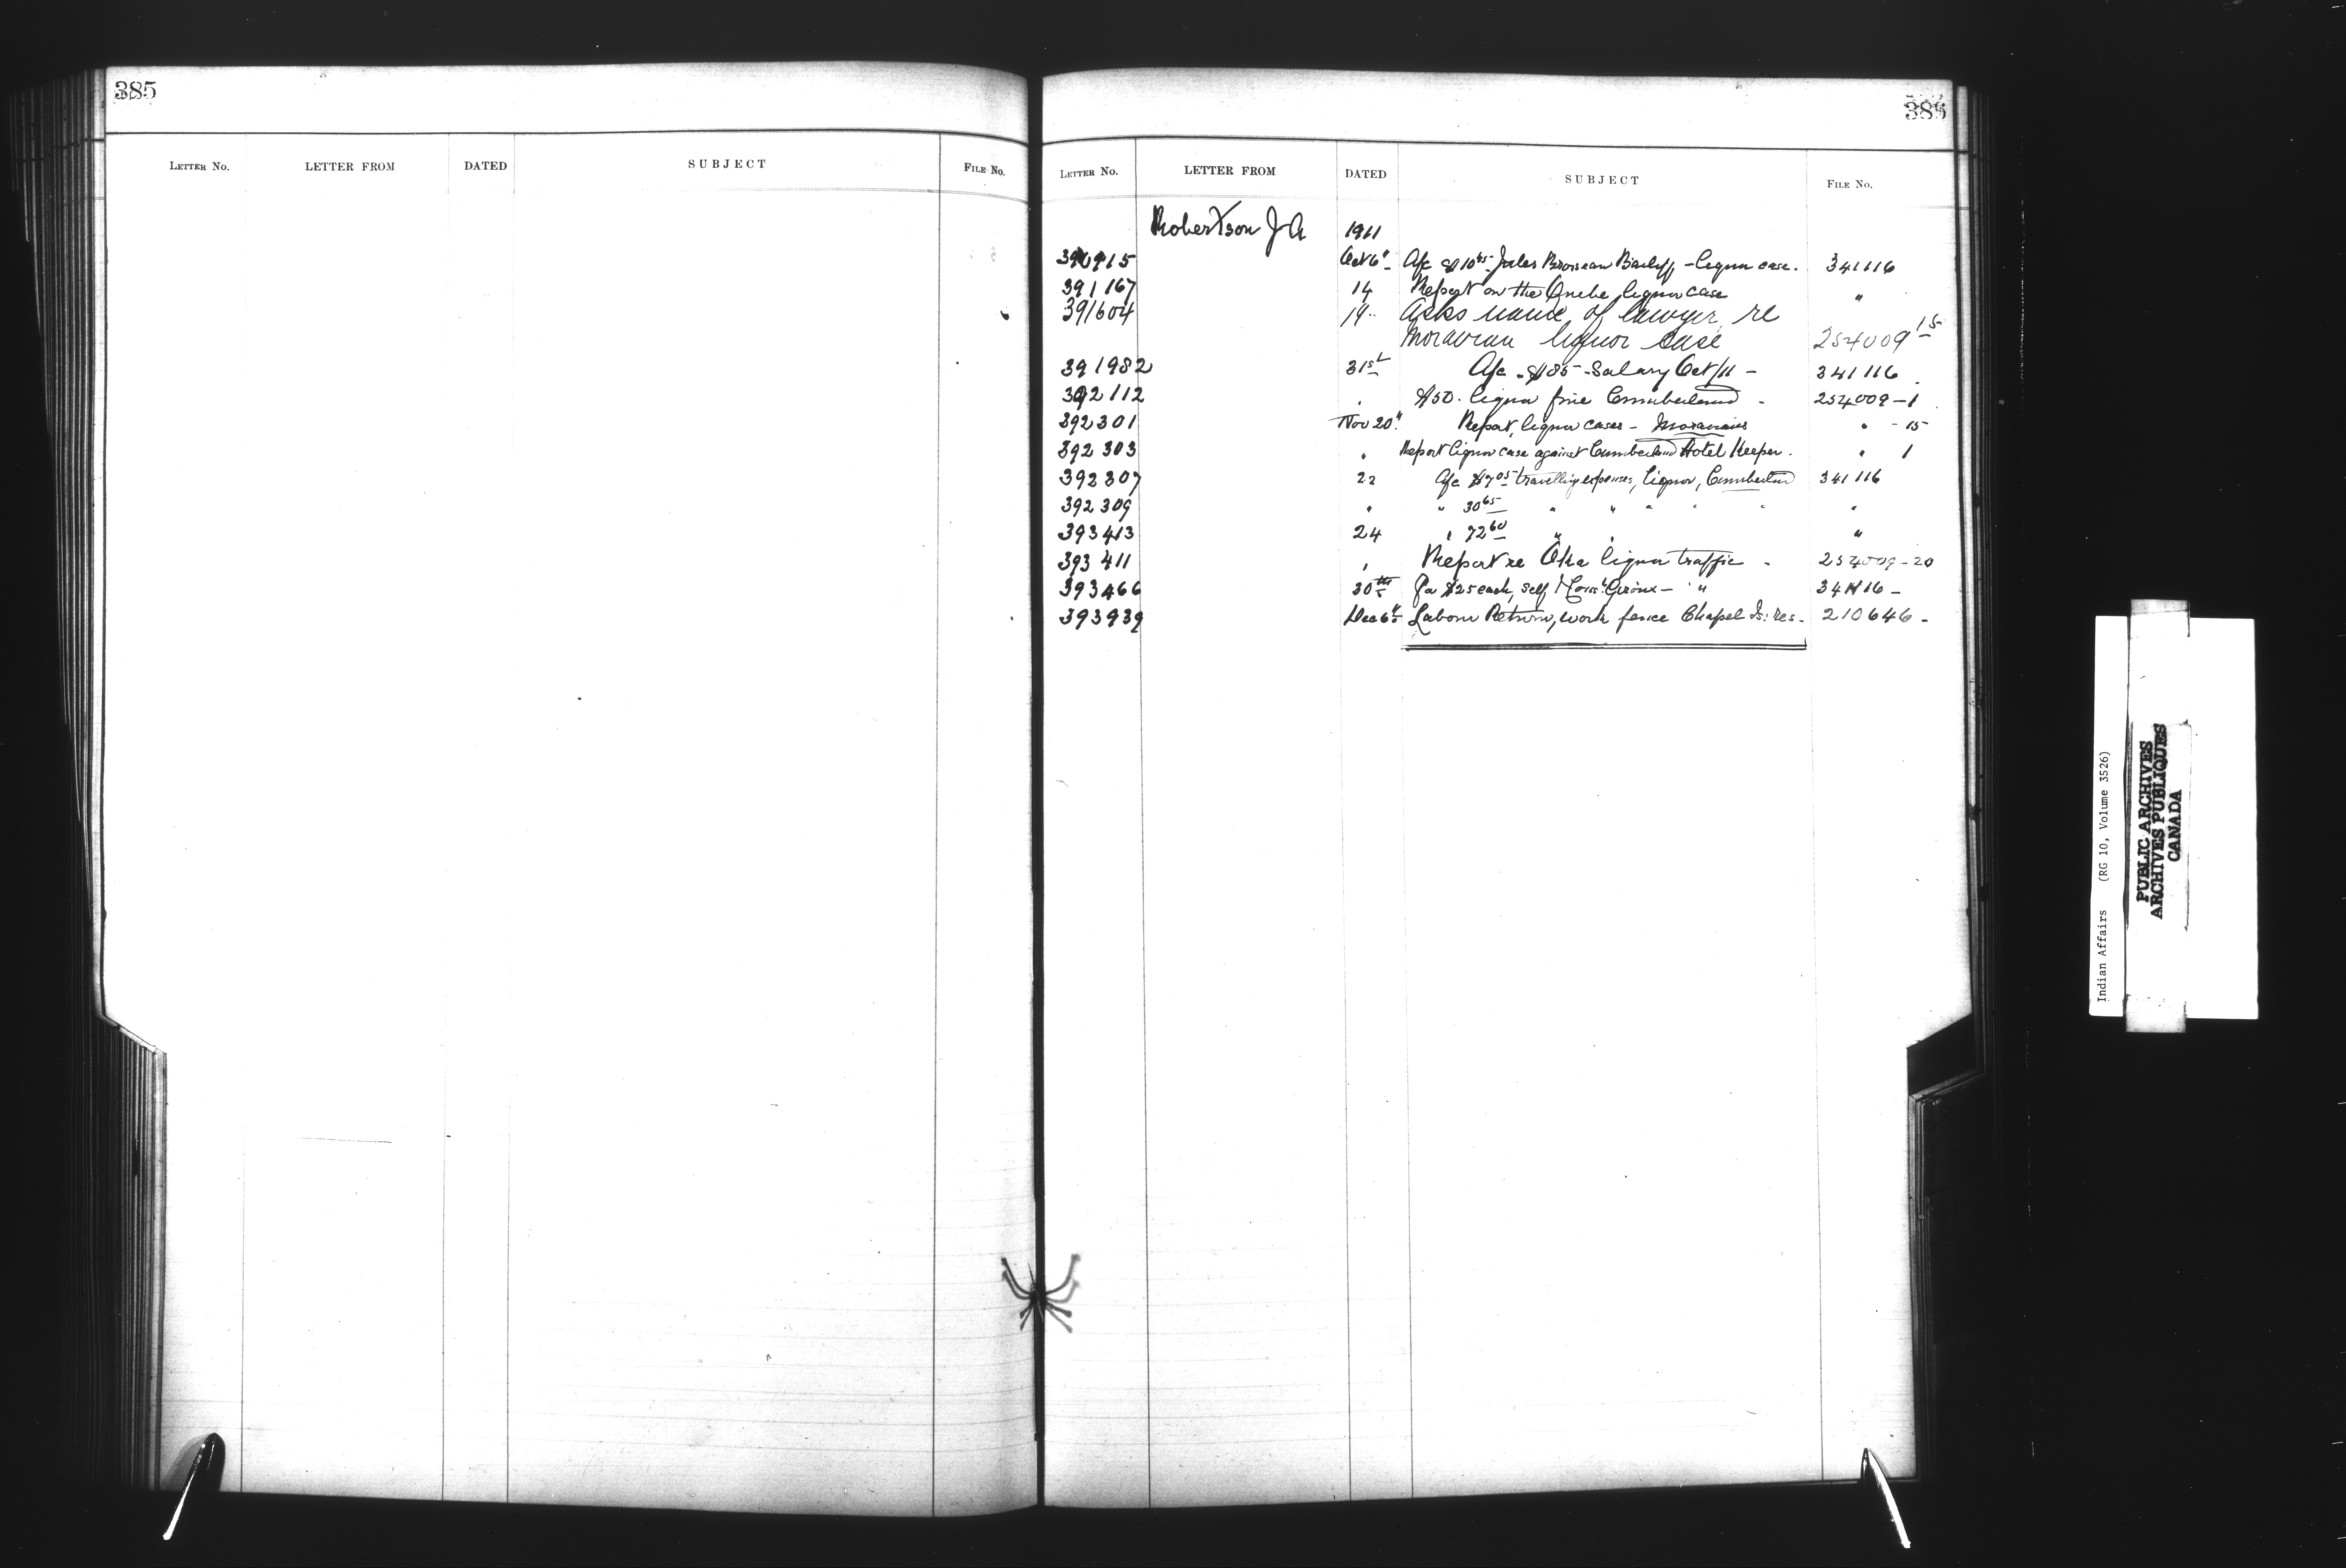 385
LETTER No. LETTER FROM DATED SUBJECT FILE No.
385
LETTER No. LETTER FROM DATED SUBJECT FILE No.
Robertson J A 1911
390915 Oct 6" A/c $10 45 Jules Bailiff - liquor case. 341116
391167 14 Report on the liquor case "
391604 14 Asks name of lawyer re
Moravian liquor case 254009 15
391982 31st A/c $185 - Salary Oct/11 - 341116
392112 " $50. liquor fine Cumberland - 254009-1
392301 Nov 20" Report, liquor cases - Moravians " - 15
392303 " Report liquor case against Cumberland Hotel Keeper. " 1
392307 22 A/c $7 05 travelling expenses, liquor, Cumberland 341116
392309 " " 30 65 " " " " " "
393413 24 " 72 60 " " "
393411 " Report re Oka liquor traffic - 254009-20
393466 30th $25 each, self & Giroux - " " 341116 -
393939 Dec 6th Labour Return, work fence Chapel Is: res. 210646 -
Indian Affairs (RG 10, Volume 3526)
PUBLIC ARCHIVES
ARCHIVES PUBLIQUES
CANADA